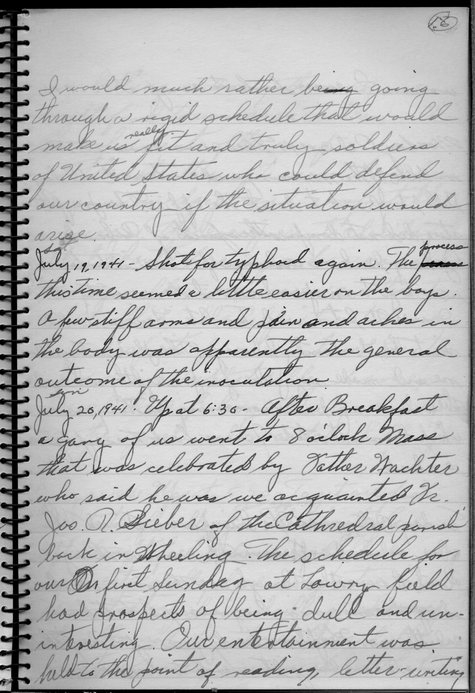 26
I would much rather being going
through a rigid schedule that would
make us really fit and truly soldiers
of United States who could defend
our country if the situation would
arise.
Sat
July 19, 1941 - Shots for typhoid again. The process
this time seemed a little easier on the boys.
A few stiff arms and pain and aches in
the body was apparently the general
outcome of the inoculation.
Sun
July 20, 1941. Up at 6:30 - After Breakfast
a gang of us went to 8 o'clock Mass
that was celebrated by Father Wachter
who said he was we acquainted Fr.
Jos. R. Sieber of the Cathedral parish
back in Wheeling. The schedule for
our first Sunday at Lowry field
had prospects of being dull and un-
interesting. Our entertainment was
held to the point of reading, letter-writing